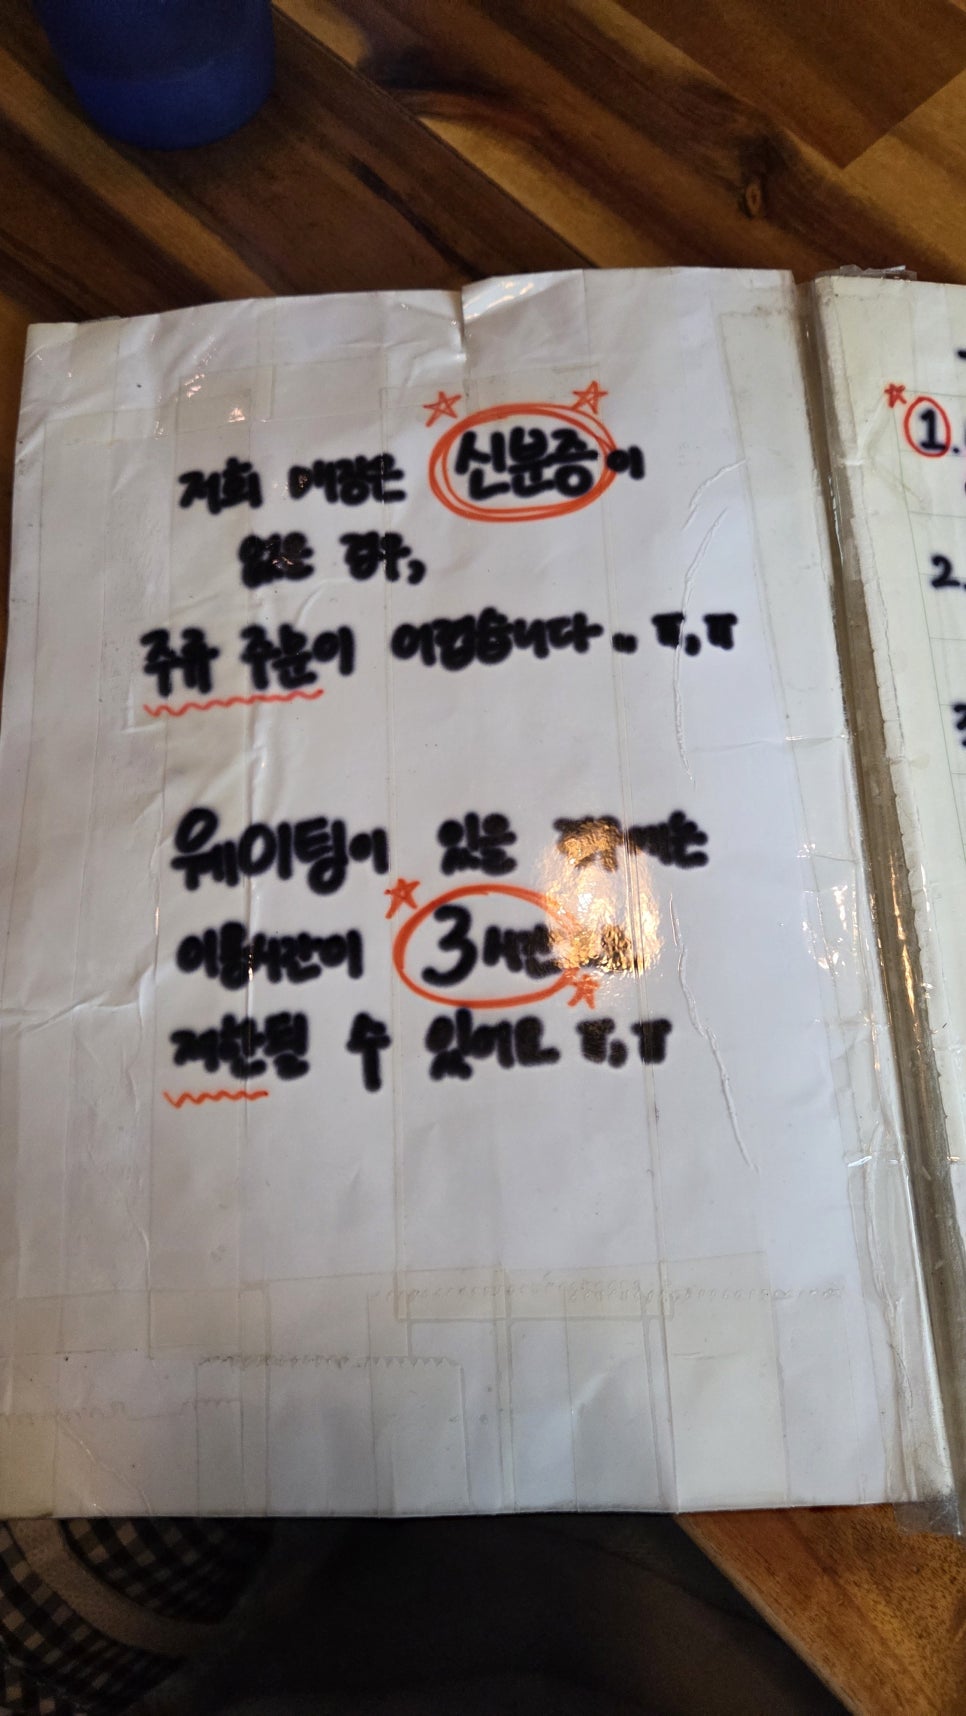 저희 매장은 신분증이
없는 경우,
주류 주문이 어렵습니다.. ㅠ,ㅠ
웨이팅이 있을
이용시간이 3시간
제한될 수 있어요 ㅠ,ㅠ
1.
2.